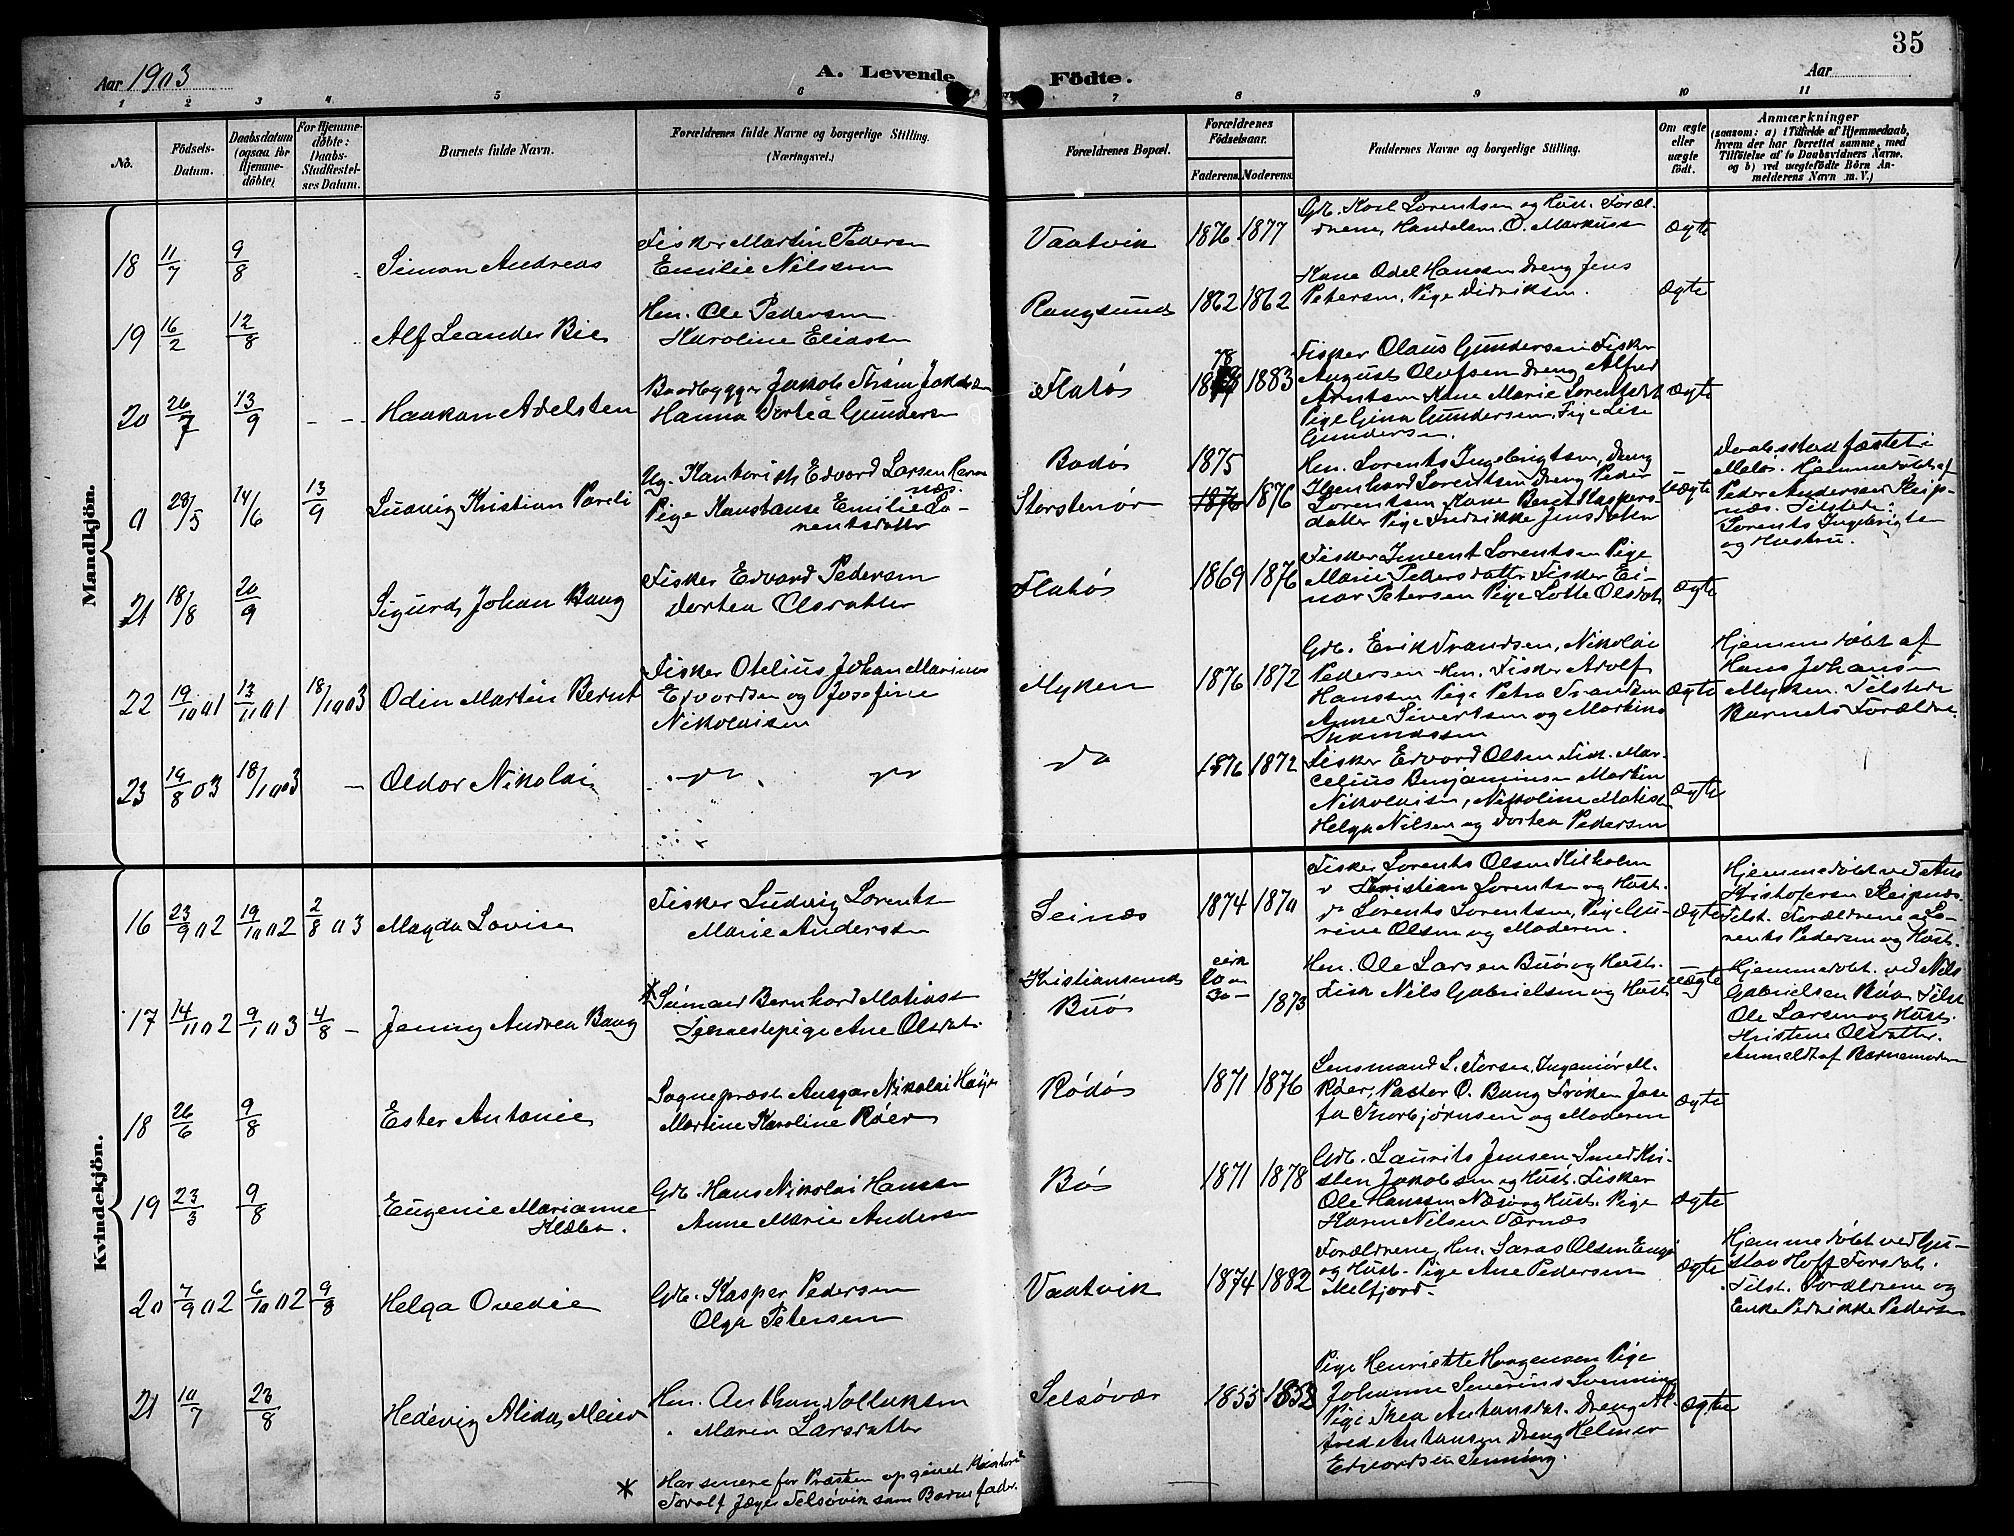 35
Aar 1903
A. Levende Födte.
Aar
1 2 3 4 5 6 7 8 9 10 11
No.
Födsels-
Datum.
Daabsdatum
(ogsaa for
Hjemme-
døbte)
For Hjemme-
døbte:
Daabs-
Stadfæstel-
ses Datum.
Barnets fulde Navn.
Forældrenes fulde Navne og borgerlige Stilling.
(Næringsvei.)
Forældrenes Bopæl.
Forældrenes
Födselsaar.
Faderens. Moderens.
Faddernes Navne og borgerlige Stilling.
Om ægte
eller
uægte
født.
Anmærkninger
(saasom: a) i Tilfælde af Hjemmedaab,
hvem der har forrettet samme, med
Tilföielse af to Daabsvidners Navne.
og b) ved uægtefödte Börn An-
melderens Navn m. V.)
Mandkjön.
18 11/7 9/8 Simon Andreas
Fisker Martin Pedersen
Emilie Nilssen
Vaatvik 1876 1877
Gdb. Karl Lorentsen og Hust. Foræl-
drene, Handelsm. O. Markussen
ægte
19 16/2 12/8 Alf Leander Bie
Hm. Ole Pedersen
Karoline Eliassen
Rangsund 1862 1862
Kone Odel Hanssen Dreng Jens
Petersen, Pige Didriksen.
ægte
20 26/7 13/9 - - Haakan Adelsten
Baadbygger Jakob Strøm Jakobsen
Hanna Dortea Gundersen
Flatøs 78 1883
Fisker Olaus Gundersen Fisker
August Olufsen Dreng Alfred
Arntsen Kone Marie Lorentsdt
Pige Gina Gundersen, Pige Lise
Gundersen.
ægte
0 28/5 14/6 13/9 Ludvig Kristian Pareli
Ug. Kontorist Edvard Larsen
næs.
Pige Konstanse Emilie Lo-
rentsdatter
Bodøs 1875
Storstenør 1876 1876
Hm. Lorents Ingebrigtsen, Dreng
Lorentsen Dreng Peder
Lorentsen Kone Berit Kaspers-
datter Pige Fredrikke Jensdatter
uægte
Daabs stadfæstet i
Meløs. Hjemmedøbt af
Peder Andersen Reip-
næs. Tilstede:
Lorents Ingebrigtsen
og Hustru.
21 18/8 20/9 Sigurd Johan Bang
Fisker Edvard Pedersen
Dortea Olsdatter
Flatøs 1869 1876
Fisker Lorentsen Pige
Marie Pedersdatter Fisker Ei-
nar Petersen Pige Lotte Olsdat
ægte
22 19/10 01 13/11 01 18/10 03 Odin Martin Bernt
Fisker Otelius Johan Marinus
Edvardsen og Josefine
Nikolaisen
Myken 1876 1872
Gdb. Erik Svendsen, Nikolai
Pedersen Hm. Fisker Adolf
Hanssen Pige Petra Svendsen
Anne Sivertsen og Martine
Thomassen
ægte
Hjemmedøbt af
Hans Johansen
Myken. Tilstede
Barnets Forældre.
23 19/8 03 18/10 03 - Oldor Nikolai
do 1876 1872
Fisker Edvard Olsen Fisk. Mar-
celius Benjaminsen Martin
Nikolaisen, Nikoline Matisen
Helga Nilsen og Dortea Pedersen
ægte
Kvindekjön.
16 23/9 02 19/10 02 2/8 03 Magda Lovise
Fisker Ludvig Lorentsen
Marie Anderssen
Seinæs 1874 1870
Fisker Lorents Olsen Kilholm
" Kristian Lorentsen og Hust.
do Lorents Lorentsen, Pige Gu-
rine Olsen og Moderen.
ægte
Hjemmedøbt ved
Kristofersen Reipnæs.
Tilst. Forældrene og Lo-
rents Pedersen og Hust.
17 14/11 02 9/1 03 4/8 - Jenny Andrea Bang
* Sømand Bernhard Matiassen
Tjenestepige Ane Olsdat.
Kristiansund
Buø
cirk
20 a
30 - 1873
Hm. Ole Larsen Buø og Hust.
Fisk Nils Gabrielsen og Hust
uægte
Hjemmedøbt ved Nils
Gabrielsen Buø. Tilst
Ole Larsen og Hust.
Kristine Olsdatter.
Anmeldt af Barnemoderen
18 26/6 9/8 Ester Antonie
Sogneprest Ansgar Nikolai Høyer
Martine Karoline Røer
Rødøs 1871 1876
Lensmand L. Torsen, Ingeniør M.
Røer, Pastor O. Bang Frøken Jose
fa Thorbjørnsen og Moderen
ægte
19 23/3 9/8 Eugenie Marianne
Klæbo.
Gdb. Hans Nikolai Hansen
Anne Marie Andersen
Bøs 1871 1878
Gdb. Laurits Jensen Smed Kri-
sten Jakobsen og Hust. Fisker
Ole Hanssen Næsø og Hust. Pige
Karen Nilsen Værnæs
ægte
20 7/9 02 6/10 02 9/8 Helga Ovedie
Gdb. Kasper Pedersen
Olga Petersen
Vaatvik 1874 1882
Forældrene, Hm. Olsen
og Hust. Pige Ane Pedersen
Melfjord.
ægte
Hjemmedøbt ved Gu-
stav Hoff
Tilst. Forældrene og
Enke Pedersen
21 10/7 23/8 Hedevig Alida Meier
Hm. Anthon Tollaksen
Maren Larsdatter
Selsøvær 1855 1853
Pige Henriette Haagensen Pige
Johanne Severine Svenning
Pige Thea Antonsdat. Dreng Al-
fred Antonsen Dreng Helmer
Edvardsen
ægte
* Har senere for Præsten opgivet
Torolf Jæger Selsøvik som Barnefader.